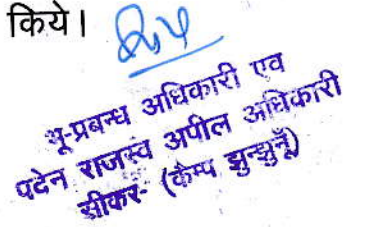 किये।
भू-प्रबन्ध अधिकारी एव
पदेन राजस्व अपील अधिकारी
सीकर- (कैम्प झुन्झुनूँ)